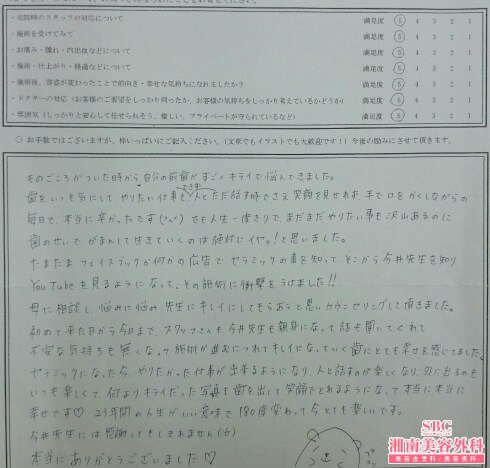 ・来院時のスタッフの対応について 満足度 5 4 3 2 1
・施術を受けてみて 満足度 5 4 3 2 1
・お痛み・腫れ・内出血などについて 満足度 5 4 3 2 1
・施術・仕上がり・経過などについて 満足度 5 4 3 2 1
・施術後、容姿が変わったことで前向き・幸せな気持ちになれましたか? 満足度 5 4 3 2 1
・ドクターの対応(お客様のご要望をしっかり伺ったか、お客様の気持ちをしっかり考えているかどうか) 満足度 5 4 3 2 1
・雰囲気(しっかりと安心して任せられそう、優しい、プライベートが守られているなど) 満足度 5 4 3 2 1
○ お手数ではございますが、枠いっぱいにご記入ください。(文章でもイラストでも大歓迎です!)今後の励みにさせて頂きます。
ものごころがついた時から自分の前歯がすごくキライで悩んできました。
歯をいつも気にしてやりたい仕事も人とただ話す時でさえ笑顔を見せれず、手で口をかくしながらの
毎日で、本当に辛かったです でも人生一度きりで、まだまだやりたい事も沢山あるのに
歯のせいでがまんして生きていくのは絶対にイヤ。!と思いました。
たまたまフェイスブックか何かの広告でセラミックの事を知って、そこから今井先生を知り
YouTubeを見るようになって、その施術に衝撃をうけました!!
母に相談し悩みに悩み先生にキレイにしてもらおうと思いカウンセリングして頂きました。
初めて来た日から今日まで、スタッフさんも今井先生も親身になって話を聞いてくれて
不安な気持ちも無くなって施術が進むにつれてキレイになっていく歯にとても幸せを感じてました。
セラミックになった今、やりたかった仕事が出来るようになり、人と話すのが楽しくなり、外に出るのも
いつも楽しくて、何よりキライだった写真も歯を出して笑顔でとれるようになって本当に本当に
幸せです♡ 23年間の人生がいい意味で180度変わって今とても楽しいです。
今井先生には感謝してもしきれません
本当にありがとうございました♡
SBC
湘南美容外科
美容皮膚科/美容歯科